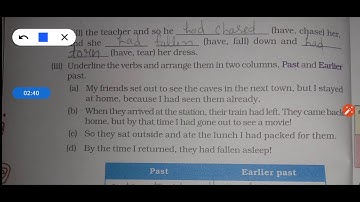 the teacher and so he had chased (have, chase) her,
and she had fallen (have, fall) down and had
torn (have, tear) her dress.
(iii) Underline the verbs and arrange them in two columns, Past and Earlier
past.
(a) My friends set out to see the caves in the next town, but I stayed
at home, because I had seen them already.
(b) When they arrived at the station, their train had left. They came back
home, but by that time I had gone out to see a movie!
(c) So they sat outside and ate the lunch I had packed for them.
(d) By the time I returned, they had fallen asleep!
Past Earlier past
02:40